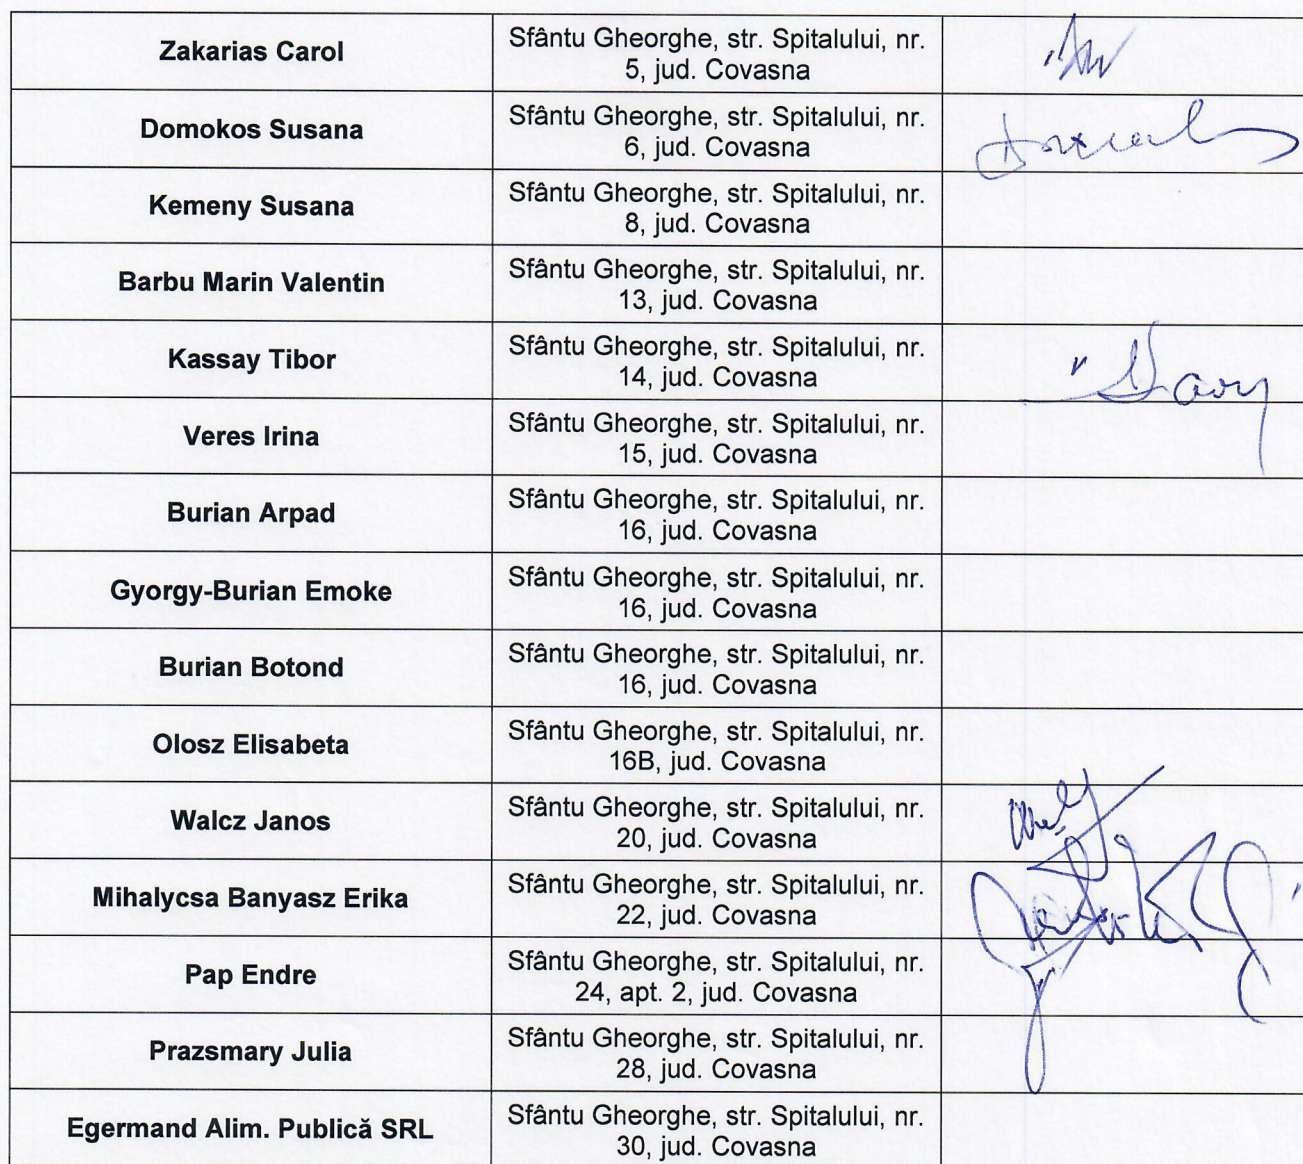 Zakarias Carol
Sfântu Gheorghe, str. Spitalului, nr.
5, jud. Covasna
Domokos Susana
Sfântu Gheorghe, str. Spitalului, nr.
6, jud. Covasna
Kemeny Susana
Sfântu Gheorghe, str. Spitalului, nr.
8, jud. Covasna
Barbu Marin Valentin
Sfântu Gheorghe, str. Spitalului, nr.
13, jud. Covasna
Kassay Tibor
Sfântu Gheorghe, str. Spitalului, nr.
14, jud. Covasna
Veres Irina
Sfântu Gheorghe, str. Spitalului, nr.
15, jud. Covasna
Burian Arpad
Sfântu Gheorghe, str. Spitalului, nr.
16, jud. Covasna
Gyorgy-Burian Emoke
Sfântu Gheorghe, str. Spitalului, nr.
16, jud. Covasna
Burian Botond
Sfântu Gheorghe, str. Spitalului, nr.
16, jud. Covasna
Olosz Elisabeta
Sfântu Gheorghe, str. Spitalului, nr.
16B, jud. Covasna
Walcz Janos
Sfântu Gheorghe, str. Spitalului, nr.
20, jud. Covasna
Mihalycsa Banyasz Erika
Sfântu Gheorghe, str. Spitalului, nr.
22, jud. Covasna
Pap Endre
Sfântu Gheorghe, str. Spitalului, nr.
24, apt. 2, jud. Covasna
Prazsmary Julia
Sfântu Gheorghe, str. Spitalului, nr.
28, jud. Covasna
Egermand Alim. Publică SRL
Sfântu Gheorghe, str. Spitalului, nr.
30, jud. Covasna